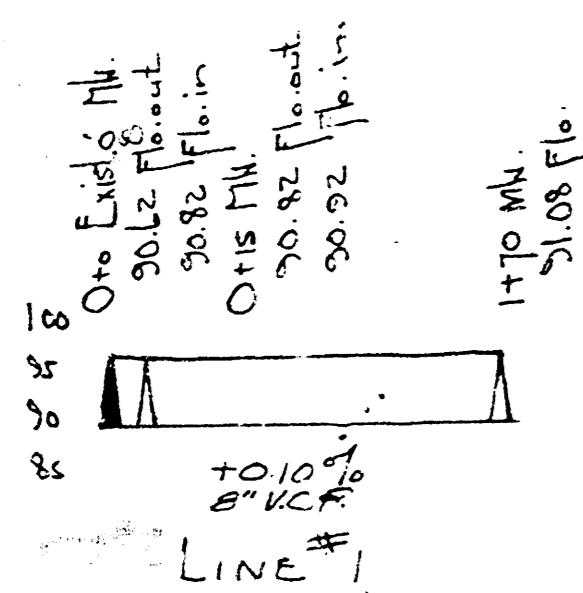 0+0 Exist. 8 MH.
90.62 Flo. out
90.82 Flo. in
0+15 MH.
90.82 Flo. out
90.92 Flo. in.
1+70 MH.
91.08 Flo.
100
95
90
85
+0.10%
8" V.C.P.
LINE #1